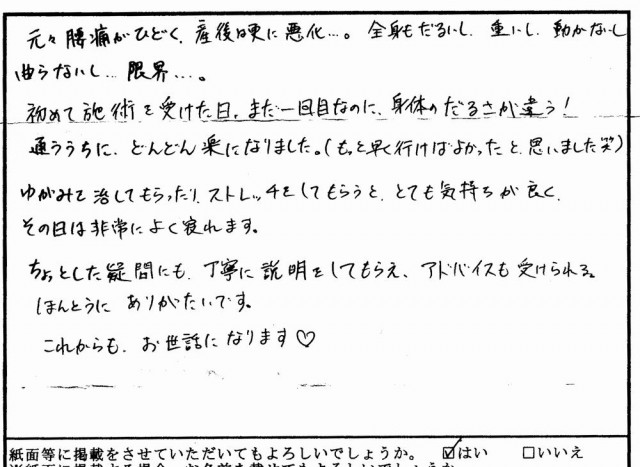 元々腰痛がひどく、産後は更に悪化…。全身もだるいし、重いし、動かないし
曲らないし…限界…。
初めて施術を受けた日、まだ一回目なのに、身体のだるさが違う！
通ううちに、どんどん楽になりました。(もっと早く行けばよかったと、思いました笑)
ゆがみを治してもらったり、ストレッチをしてもらうと、とても気持ちが良く、
その日は非常によく寝れます。
ちょっとした疑問にも、丁寧に説明をしてもらえ、アドバイスも受けられる。
ほんとうに ありがたいです。
これからも、お世話になります♡
紙面等に掲載をさせていただいてもよろしいでしょうか。 ☑はい □いいえ